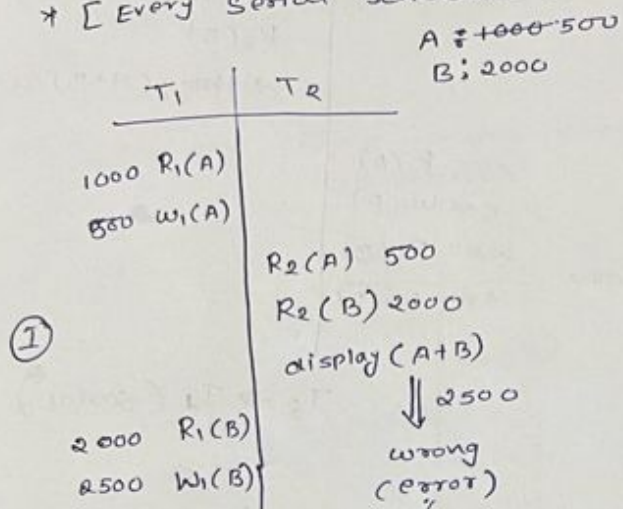 * [ Every Serial
A : 1000 500
B : 2000
T1 T2
1000 R1(A)
500 W1(A)
R2(A) 500
R2(B) 2000
display (A+B)
⇓ 2500
I
2000 R1(B)
wrong
2500 W1(B)
(error)